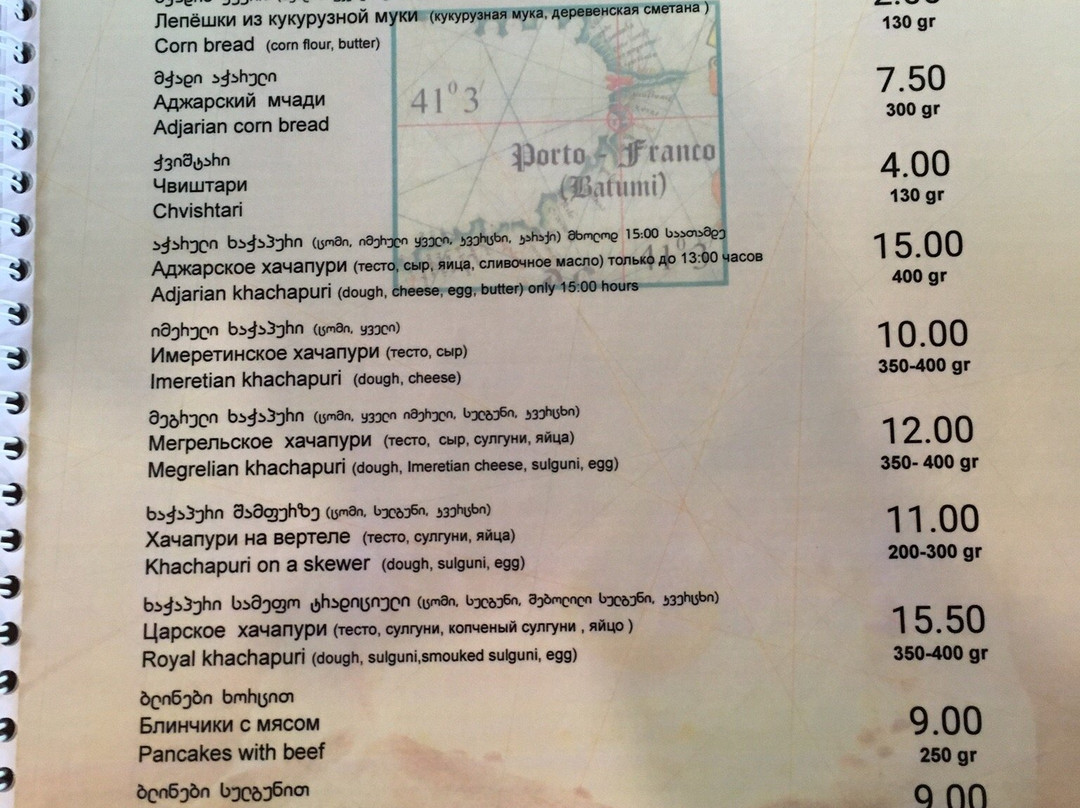 Лепёшки из кукурузной муки (кукурузная мука, деревенская сметана )
130 gr
Corn bread (corn flour, butter)
მჭადი აჭარული
7.50
Аджарский мчади
300 gr
Adjarian corn bread
41° 3'
Porto - Franco
(Batumi)
ჭვიშტარი
4.00
Чвиштари
130 gr
Chvishtari
აჭარული ხაჭაპური (ცომი, იმერული ყველი, კვერცხი, კარაქი) მხოლოდ 15:00 საათამდე
15.00
Аджарское хачапури (тесто, сыр, яица, сливочное масло) только до 13:00 часов
41° 3'
400 gr
Adjarian khachapuri (dough, cheese, egg, butter) only 15:00 hours
იმერული ხაჭაპური (ცომი, ყველი)
10.00
Имеретинское хачапури (тесто, сыр)
350-400 gr
Imeretian khachapuri (dough, cheese)
მეგრული ხაჭაპური (ცომი, ყველი იმერული, სულგუნი, კვერცხი)
12.00
Мегрельское хачапури (тесто, сыр, сулгуни, яйца)
350- 400 gr
Megrelian khachapuri (dough, Imeretian cheese, sulguni, egg)
ხაჭაპური შამფურზე (ცომი, სულგუნი, კვერცხი)
11.00
Хачапури на вертеле (тесто, сулгуни, яйца)
200-300 gr
Khachapuri on a skewer (dough, sulguni, egg)
ხაჭაპური სამეფო ტრადიციული (ცომი, სულგუნი, შებოლილი სულგუნი, კვერცხი)
15.50
Царское хачапури (тесто, сулгуни, копченый сулгуни , яйцо )
350-400 gr
Royal khachapuri (dough, sulguni,smouked sulguni, egg)
ბლინები ხორცით
9.00
Блинчики с мясом
250 gr
Pancakes with beef
ბლინები სულგუნით
9.00